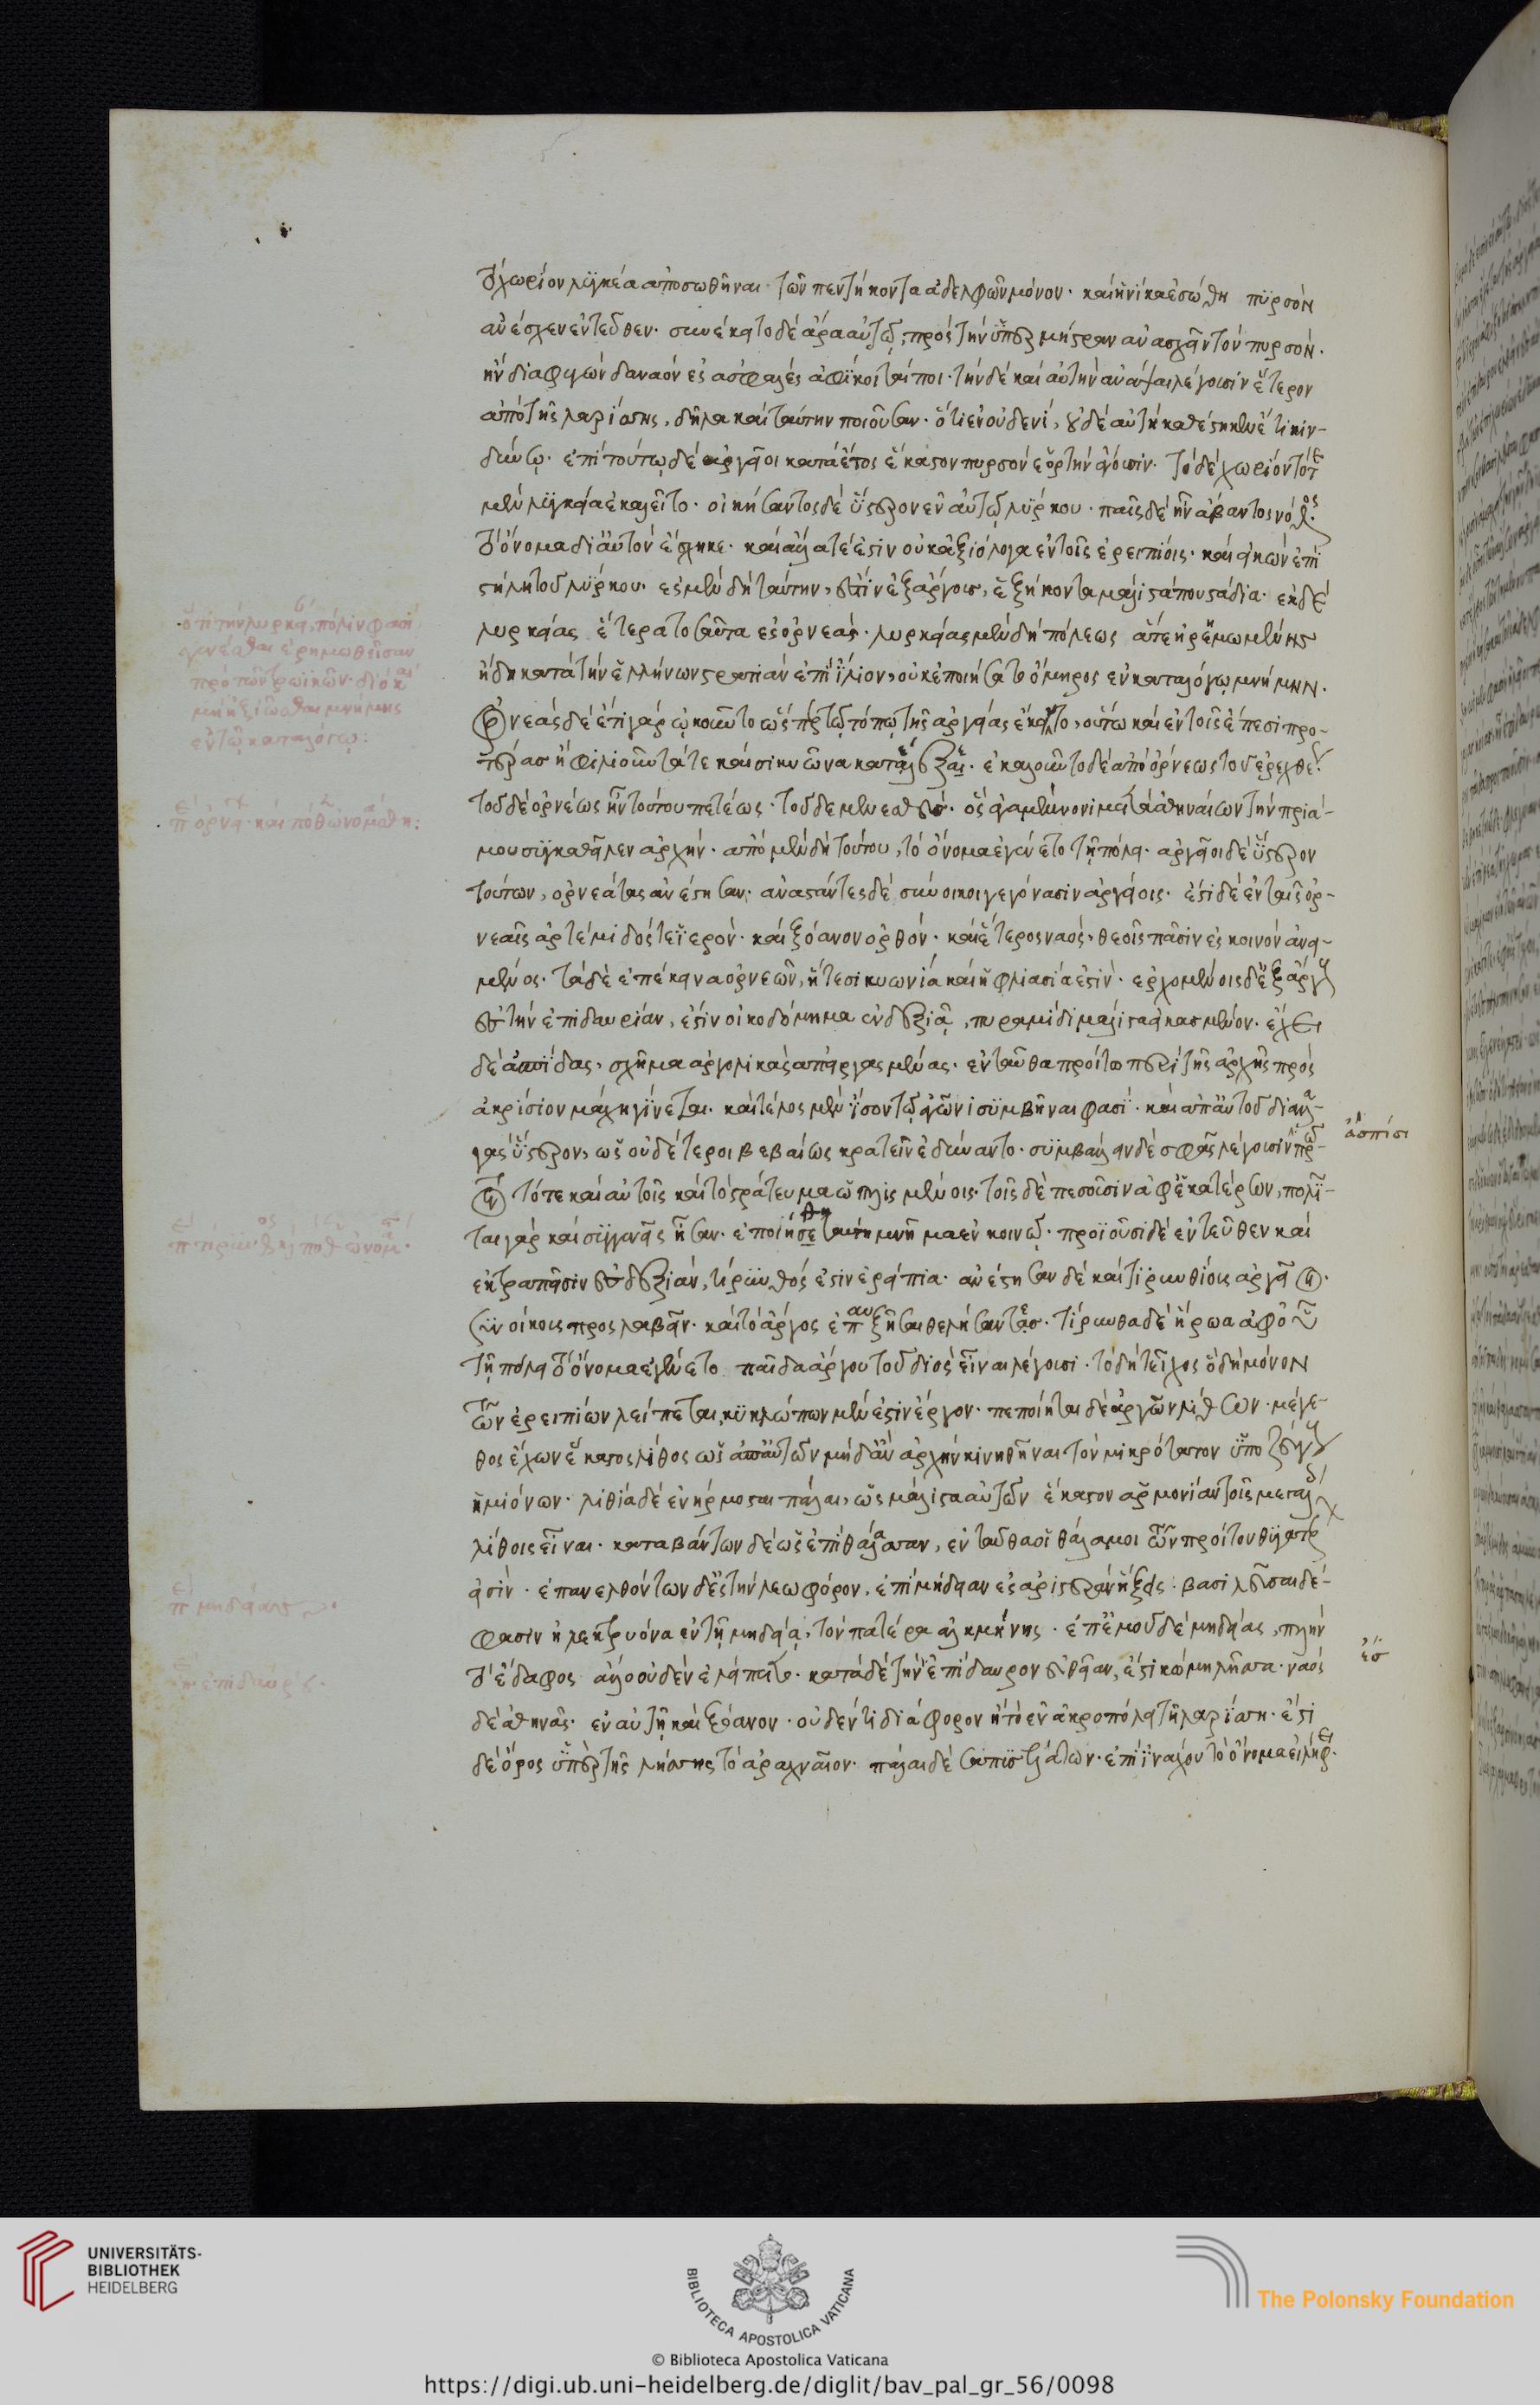 τὸ χωρίον λυγκέα ἀποσωθῆναι τῶν πεντήκοντα ἀδελφῶν μόνον· καὶ ἡνίκα ἐσώθη πυρσὸν
ἀνέσχεν ἐντεῦθεν· συνέκειτο δὲ ἄρα αὐτῷ, πρὸς τὴν ὑπερμήστραν ἀνασχεῖν τὸν πυρσόν·
ἢν διαφυγὼν δαναὸν ἐς ἀσφαλὲς ἀφίκηταί ποι· τὴν δὲ καὶ αὐτὴν ἀνάψαι λέγουσιν ἕτερον
ἀπὸ τῆς λαρίσης, δῆλα καὶ ταύτην ποιοῦσαν· ὅτι ἐν οὐδενὶ, οὐδὲ αὐτὴ καθέστηκεν ἔτι κιν-
δύνῳ· ἐπὶ τούτῳ δὲ ἀργεῖοι κατὰ ἔτος ἕκαστον πυρσὸν ἑορτὴν ἄγουσιν· τὸ δὲ χωρίον τότε
μὲν λυγκεία ἐκαλεῖτο· οἰκήσαντος δὲ ὕστερον ἐν αὐτῷ λύρκου· παῖς δὲ ἦν ἄβαντος νόθος·
τὸ ὄνομα δι' αὐτὸν ἔσχηκε· καὶ ἄλλα τέ ἐστιν οὐκ ἀξιόλογα ἐν τοῖς ἐρειπίοις· καὶ εἰκὼν ἐπὶ
στήλῃ τοῦ λύρκου· ἐς μὲν δὴ ταύτην, ἐστὶν ἐξ ἄργους, ἑξήκοντα μάλιστά που στάδια· ἐκ δὲ
λυρκείας ἕτερα τοσαῦτα ἐς ὀρνεάς· λυρκείας μὲν δὴ πόλεως ἅτε ἠρημωμένης
ἤδη κατὰ τὴν ἑλλήνων στρατιὰν ἐπὶ ἴλιον, οὐκ ἐποιήσατο ὅμηρος ἐν καταλόγῳ μνήμην·
ὀρνεὰς δὲ ἔτι γὰρ ᾠκοῦντο ὥσπερ τῷ τόπῳ τῆς ἀργείας ἔκειντο, οὕτω καὶ ἐν τοῖς ἔπεσι προ-
τέρας ἢ φλιοῦντά τε καὶ σικυῶνα κατέλεξεν· ἐκαλοῦντο δὲ ἀπὸ ὀρνέως τοῦ ἐρεχθέως·
τοῦ δὲ ὀρνέως ἦν τούτου πετέως· τοῦ δὲ μενεσθεύς· ὃς ἀγαμέμνονι μετὰ ἀθηναίων τὴν πριά-
μου συγκαθεῖλεν ἀρχήν· ἀπὸ μὲν δὴ τούτου, τὸ ὄνομα ἐγένετο τῇ πόλει· ἀργεῖοι δὲ ὕστερον
τούτων, ὀρνεάτας ἀνέστησαν· ἀναστάντες δὲ σύνοικοι γεγόνασιν ἀργείοις· ἔστι δὲ ἐν ταῖς ὀρ-
νεαῖς ἀρτέμιδός τε ἱερὸν· καὶ ξόανον ὀρθόν· καὶ ἕτερος ναὸς, θεοῖς πᾶσιν ἐς κοινὸν ἀνει-
μένος· τὰ δὲ ἐπέκεινα ὀρνεῶν, ἥ τε σικυωνία καὶ ἡ φλιασία ἐστίν· ἐρχομένοις δὲ ἐξ ἄργους
ἐς τὴν ἐπιδαυρίαν, ἔστιν οἰκοδόμημα ἐν δεξιᾷ, πυραμίδι μάλιστα εἰκασμένον· ἔχει
δὲ ἀσπίδας, σχῆμα ἀργολικὰς ἐπειργασμένας· ἐνταῦθα προίτῳ περὶ τῆς ἀρχῆς πρὸς
ἀκρίσιον μάχη γίνεται· καὶ τέλος μὲν ἴσον τῷ ἀγῶνι συμβῆναι φασί· καὶ ἀπ' αὐτοῦ διαλλ-
γὰς ὕστερον, ὡς οὐδέτεροι βεβαίως κρατεῖν ἐδύναντο· συμβάλλειν δὲ σφᾶς λέγουσιν πρῶ-
τον τότε καὶ αὐτοῖς καὶ τὸ στράτευμα ὡπλισμένοις· τοῖς δὲ πεσοῦσιν ἀφ' ἑκατέρων, πολῖ-
ται γὰρ καὶ συγγενεῖς ἦσαν· ἐποιήθη ταύτῃ μνῆμα ἐν κοινῷ· προϊοῦσι δὲ ἐντεῦθεν καὶ
ἐκτραπεῖσιν ἐς δεξιὰν, τίρυνθός ἐστιν ἐρείπια· ἀνέστησαν δὲ καὶ τιρυνθίους ἀργεῖοι·
συνοίκους προσλαβεῖν· καὶ τὸ ἄργος ἐπαυξῆσαι θελήσαντες· τίρυνθα δὲ ἥρωα ἀφ' οὗ
τῇ πόλει τὸ ὄνομα ἐγένετο παῖδα ἄργου τοῦ διὸς εἶναι λέγουσι· τὸ δὴ τεῖχος ὃ δὴ μόνον
τῶν ἐρειπίων λείπεται, κυκλώπων μέν ἐστιν ἔργον· πεποίηται δὲ ἀργῶν λίθων· μέγε-
θος ἔχων ἕκαστος λίθος ὡς ἀπ' αὐτῶν μηδ' ἂν ἀρχὴν κινηθῆναι τὸν μικρότατον ὑπὸ ζεύγους
ἡμιόνων· λιθία δὲ ἐνήρμοσται πάλαι, ὡς μάλιστα αὐτῶν ἕκαστον ἁρμονίαν τοῖς μεγάλοις
λίθοις εἶναι· καταβάντων δὲ ὡς ἐπὶ θάλασσαν, ἐνταῦθα οἱ θάλαμοι τῶν προίτου θυγατέρων
εἰσίν· ἐπανελθόντων δὲ ἐς τὴν λεωφόρον, ἐπὶ μήδειαν ἐς ἀριστερὰν ἥξεις· βασιλεῦσαι δέ
φασιν ἠλεκτρυόνα ἐν τῇ μηδείᾳ, τὸν πατέρα ἀλκμήνης· ἐπ' ἐμοῦ δὲ μηδείας, πλὴν
τὸ ἔδαφος ἄλλο οὐδὲν ἐλείπετο· κατὰ δὲ τὴν ἐπίδαυρον εὐθεῖαν, ἔστι κώμη λῆσσα· ναὸς
δὲ ἀθηνᾶς· ἐν αὐτῇ καὶ ξόανον· οὐδέν τι διάφορον ἢ τὸ ἐν ἀκροπόλει τῇ λαρίσῃ· ἔστι
δὲ ὄρος ὑπὲρ τῆς λήσσης τὸ ἀραχναῖον· πάλαι δὲ σαπυσελάτων· ἐπὶ ἰνάχου τὸ ὄνομα εἰλήφει·
ὅτι τὴν λυρκείας πόλιν φασὶ
γενέσθαι ἐρημωθεῖσαν
πρὸ τῶν τρωικῶν· διὸ καὶ
μὴ ἠξιῶσθαι μνήμης
ἐν τῷ καταλόγῳ:
περὶ ὀρνειῶν· καὶ πόθεν ὠνομάσθη:
περὶ τίρυνθος καὶ πόθεν ὠνομάσθη·
περὶ μηδείας
περὶ ἐπιδαύρου·
ἀσπίσι
ἐσ
UNIVERSITÄTS-
BIBLIOTHEK
HEIDELBERG
BIBLIOTECA APOSTOLICA VATICANA
© Biblioteca Apostolica Vaticana
The Polonsky Foundation
https://digi.ub.uni-heidelberg.de/diglit/bav_pal_gr_56/0098